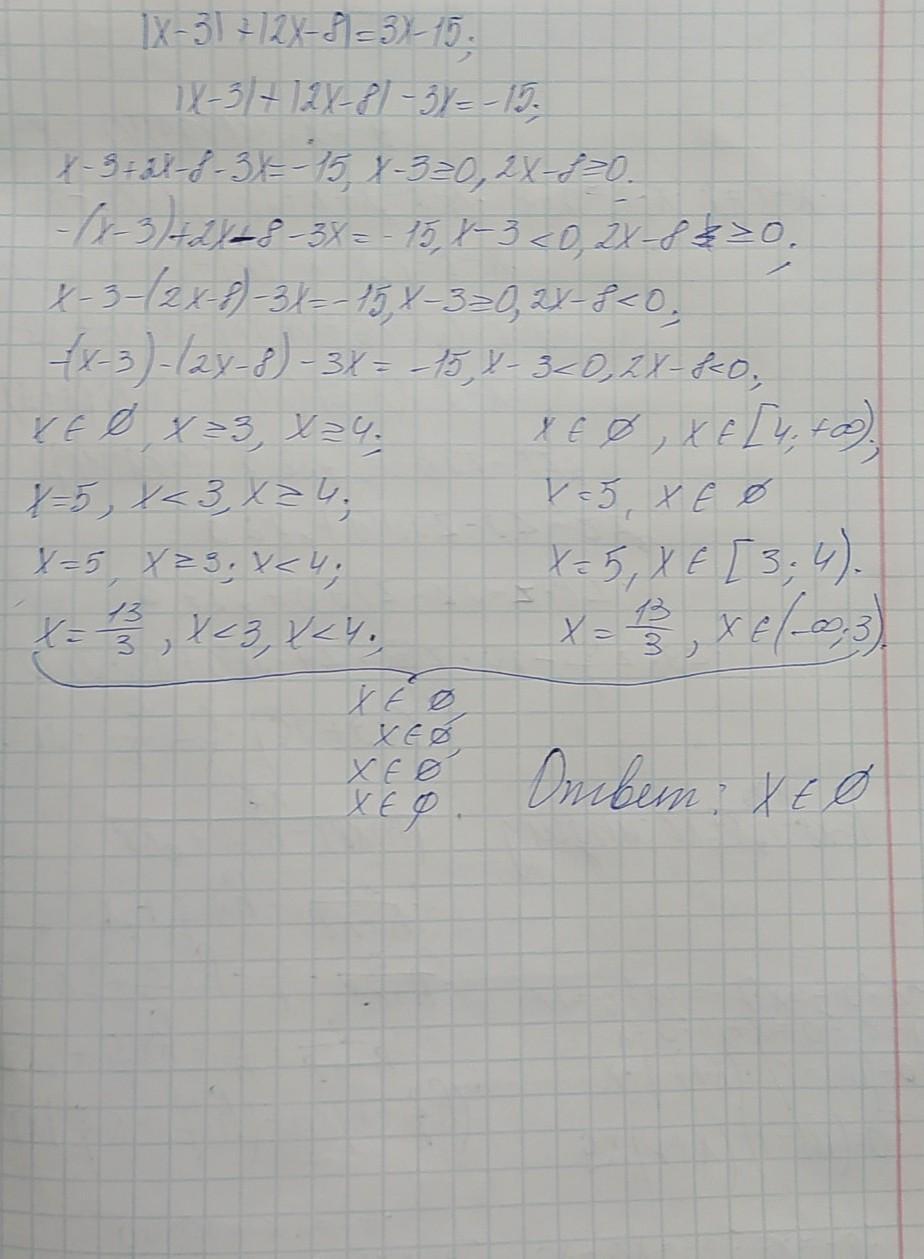 |x-3|+|2x-8|=3x-15;
|x-3|+|2x-8|-3x=-15;
x-3+2x-8-3x=-15, x-3≥0, 2x-8≥0.
-(x-3)+2x-8-3x=-15, x-3<0, 2x-8≥0;
x-3-(2x-8)-3x=-15, x-3≥0, 2x-8<0;
-(x-3)-(2x-8)-3x=-15, x-3<0, 2x-8<0;
x∈∅, x≥3, x≥4; x∈∅, x∈[4;+∞);
x=5, x<3, x≥4; x=5, x∈∅
x=5, x≥3; x<4; x=5, x∈[3;4).
x=13/3, x<3, x<4; x=13/3, x∈(-∞;3).
x∈∅,
x∈∅,
x∈∅
x∈∅.
Ответ: x∈∅